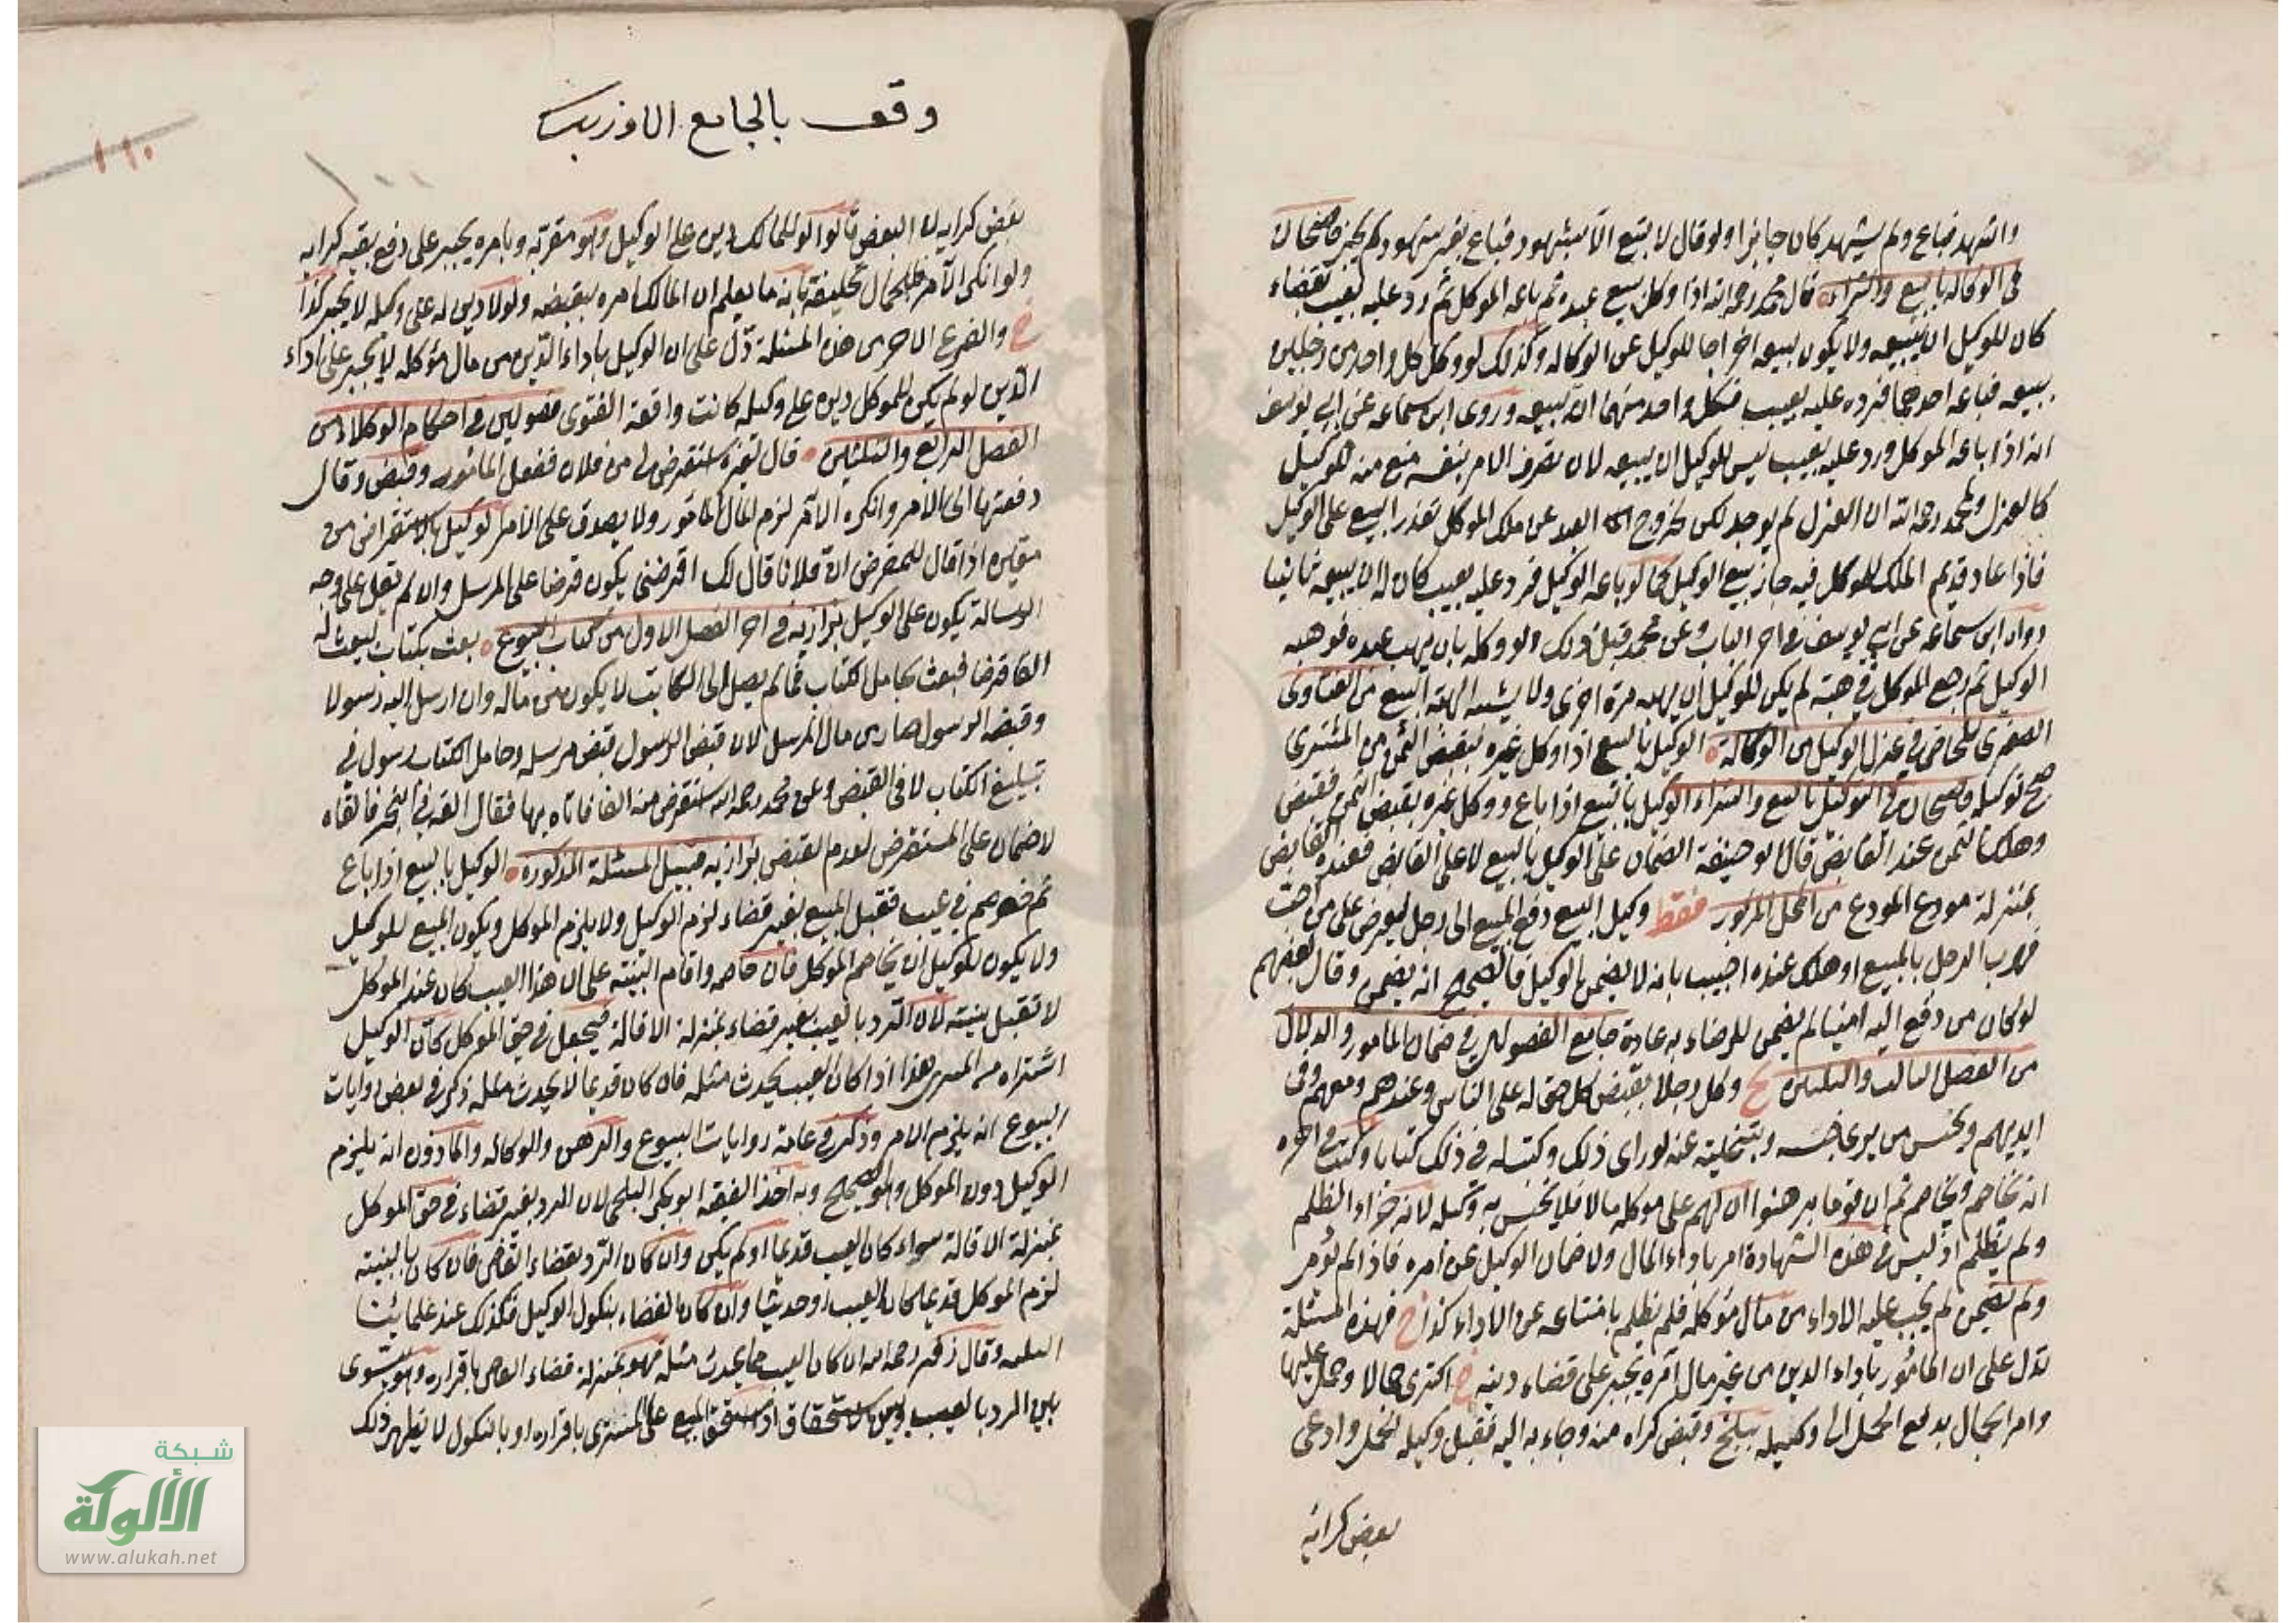 واشهد فباع ولم يشهد كان جايزا ولو قال لا تبع الا بشهود فباع بغير شهود لم يجز قاضيخان
في الوكالة بالبيع والشراء قال محمد رحمه الله اذا وكل ببيع عبده ثم باعه الموكل ثم رد عليه بعيب بقضاء
كان للوكيل ان يبيعه ولا يكون بيعه اخراجا للوكيل عن الوكالة وكذلك لو وكل كل واحد من رجلين
ببيعه فباعه احدهما فرد عليه بعيب فلكل واحد منهما ان يبيعه وروى ابن سماعه عن ابي يوسف
انه اذا باعه الموكل ورد عليه بعيب ليس للوكيل ان يبيعه لان تصرف الامر بنفسه منع منه للوكيل
كالعزل ولمحمد رحمه الله ان العزل لم يوجد لكن لخروج العبد عن ملك الموكل تعذر البيع على الوكيل
فاذا عاد قديم الملك للموكل فيه جاز بيع الوكيل كما لو باعه الوكيل فرد عليه بعيب كان له ان يبيعه ثانيا
رواه ابن سماعه عن ابي يوسف واخر الباب وعن محمد قبل ذلك ولو وكله بان يهب عبده فوهبه
الوكيل ثم رجع الموكل في هبته لم يكن للوكيل ان يهبه مرة اخرى ولا يشبه الهبة البيع من الفتاوى
الصغرى للخاصي في عزل الوكيل من الوكالة الوكيل بالبيع اذا وكل غيره بقبض الثمن من المشتري
صح توكيله قاضيخان في التوكيل بالبيع والشراء الوكيل بالبيع اذا باع ووكل غيره بقبض الثمن فقبض
وهلك الثمن عند القابض قال ابو حنيفة الضمان على الوكيل بالبيع لا على القابض فعنده القابض
بمنزلة مودع المودع من المحل المزبور فقط وكيل البيع دفع المبيع الى رجل ليعرض على من احب
فهرب الرجل بالمبيع او هلك عنده اجيب بانه لا يضمن الوكيل فالصحيح انه يضمن وقال بعضهم
لو كان من دفع اليه امينا لم يضمن للرضاء به عادة جامع الفصولين في ضمان المامور والدلال
من الفصل الثالث والثلاثين وكل رجلا بقبض كل حق له على الناس وعندهم ومعهم وفي
ايديهم وبحبس من يرى حبسه وبتخليته عنه لو راى ذلك وكتب له في ذلك كتابا وكتب في اخره
انه يخاصم ويخاصم ثم ان قوما برهنوا ان لهم على موكله مالا فلا يحبس به وكيله لانه جزاء الظلم
ولم يظلم اذ ليس في هذه الشهادة امر باداء المال ولا ضمان الوكيل عن امره فاذا لم يؤمر
ولم يضمن لم يجب عليه الاداء من مال موكله فلم يظلم بامتناعه عن الاداء كذا فهذه المسئلة
تدل على ان المامور باداء الدين من غير مال آمره يجبر على قضاء دينه اكترى حمالا وحمل عليها
وامر الحمال بدفع الحمل الى وكيله ببلخ وقبض كراه منه وجاء به اليه فقبل وكيله الحمل وادى
بعض كرايه
وقف بالجامع الازبك
١١٠
بعض كرايه لا البعض قالوا لو للمالك دين على الوكيل وهو مقر به وبامره يجبر على دفع بقية كرايه
ولو انكر الامر فللحمال تحليفه بانه ما يعلم ان المالك امره بقبضه ولو لا دين له على وكيله لا يجبر كذا
والفرع الاخر من هذه المسئلة دل على ان الوكيل باداء الدين من مال موكله لا يجبر على اداء
الدين لو لم يكن للموكل دين على وكيله كانت واقعة الفتوى فصولين في احكام الوكلاء من
الفصل الرابع والثلثين قال لغيره استقرض لي من فلان ففعل المامور وقبض وقال
دفعتها الى الامر وانكره الآمر لزم المال المامور ولا يصدق على الامر لو كيل بالاستقراض من
مقيره اذا قال للمقرض ان فلانا قال لك اقرضني يكون قرضا على المرسل وان لم يقل على وجه
الرسالة يكون على الوكيل بزازيه في اخر الفصل الاول من كتاب البيوع بعث بكتاب ليبعث له
الفا قرضا فبعث بحامل الكتاب فما لم يصل الى الكاتب لا يكون من ماله وان ارسل اليه رسولا
وقبضه الرسول صار من مال المرسل لان قبض الرسول قبض مرسله وحامل الكتاب رسول في
تبليغ الكتاب لا في القبض وعن محمد رحمه الله استقرض منه الفا فاتاه بها فقال القه في البحر فالقاه
لا ضمان على المستقرض لعدم القبض بزازيه قبيل المسئلة المذكورة الوكيل بالبيع اذا باع
ثم خوصم في عيب فقبل المبيع بغير قضاء لزم الوكيل ولا يلزم الموكل ويكون المبيع للوكيل
ولا يكون للوكيل ان يخاصم الموكل فان خاصمه واقام البينة على ان هذا العيب كان عند الموكل
لا تقبل بينته لان الرد بالعيب بغير قضاء بمنزلة الاقالة فيجعل في حق الموكل كان الوكيل
اشتراه من المشتري هذا اذا كان العيب يحدث مثله فان كان قديما لا يحدث مثله ذكر في بعض روايات
البيوع انه يلزم الامر وذكر في عامة روايات البيوع والرهن والوكالة والماذون انه يلزم
الوكيل دون الموكل وهو الصحيح وبه اخذ الفقيه ابو بكر البلخي لان الرد بغير قضاء في حق الموكل
بمنزلة الاقالة سواء كان العيب قديما او لم يكن وان كان الرد بقضاء القاضي فان كان بالبينة
لزم الموكل قديما كان العيب او حديثا وان كان القضاء بنكول الوكيل فكذلك عند علمائنا
الثلثة وقال زفر رحمه الله ان كان العيب مما يحدث مثله فهو بمنزلة قضاء القاضي باقراره وهو يسوى
بين الرد بالعيب وبين الاستحقاق اذ استحق المبيع على المشتري باقراره او بالنكول لا يظهر ذلك
شبكة
الألوكة
www.alukah.net